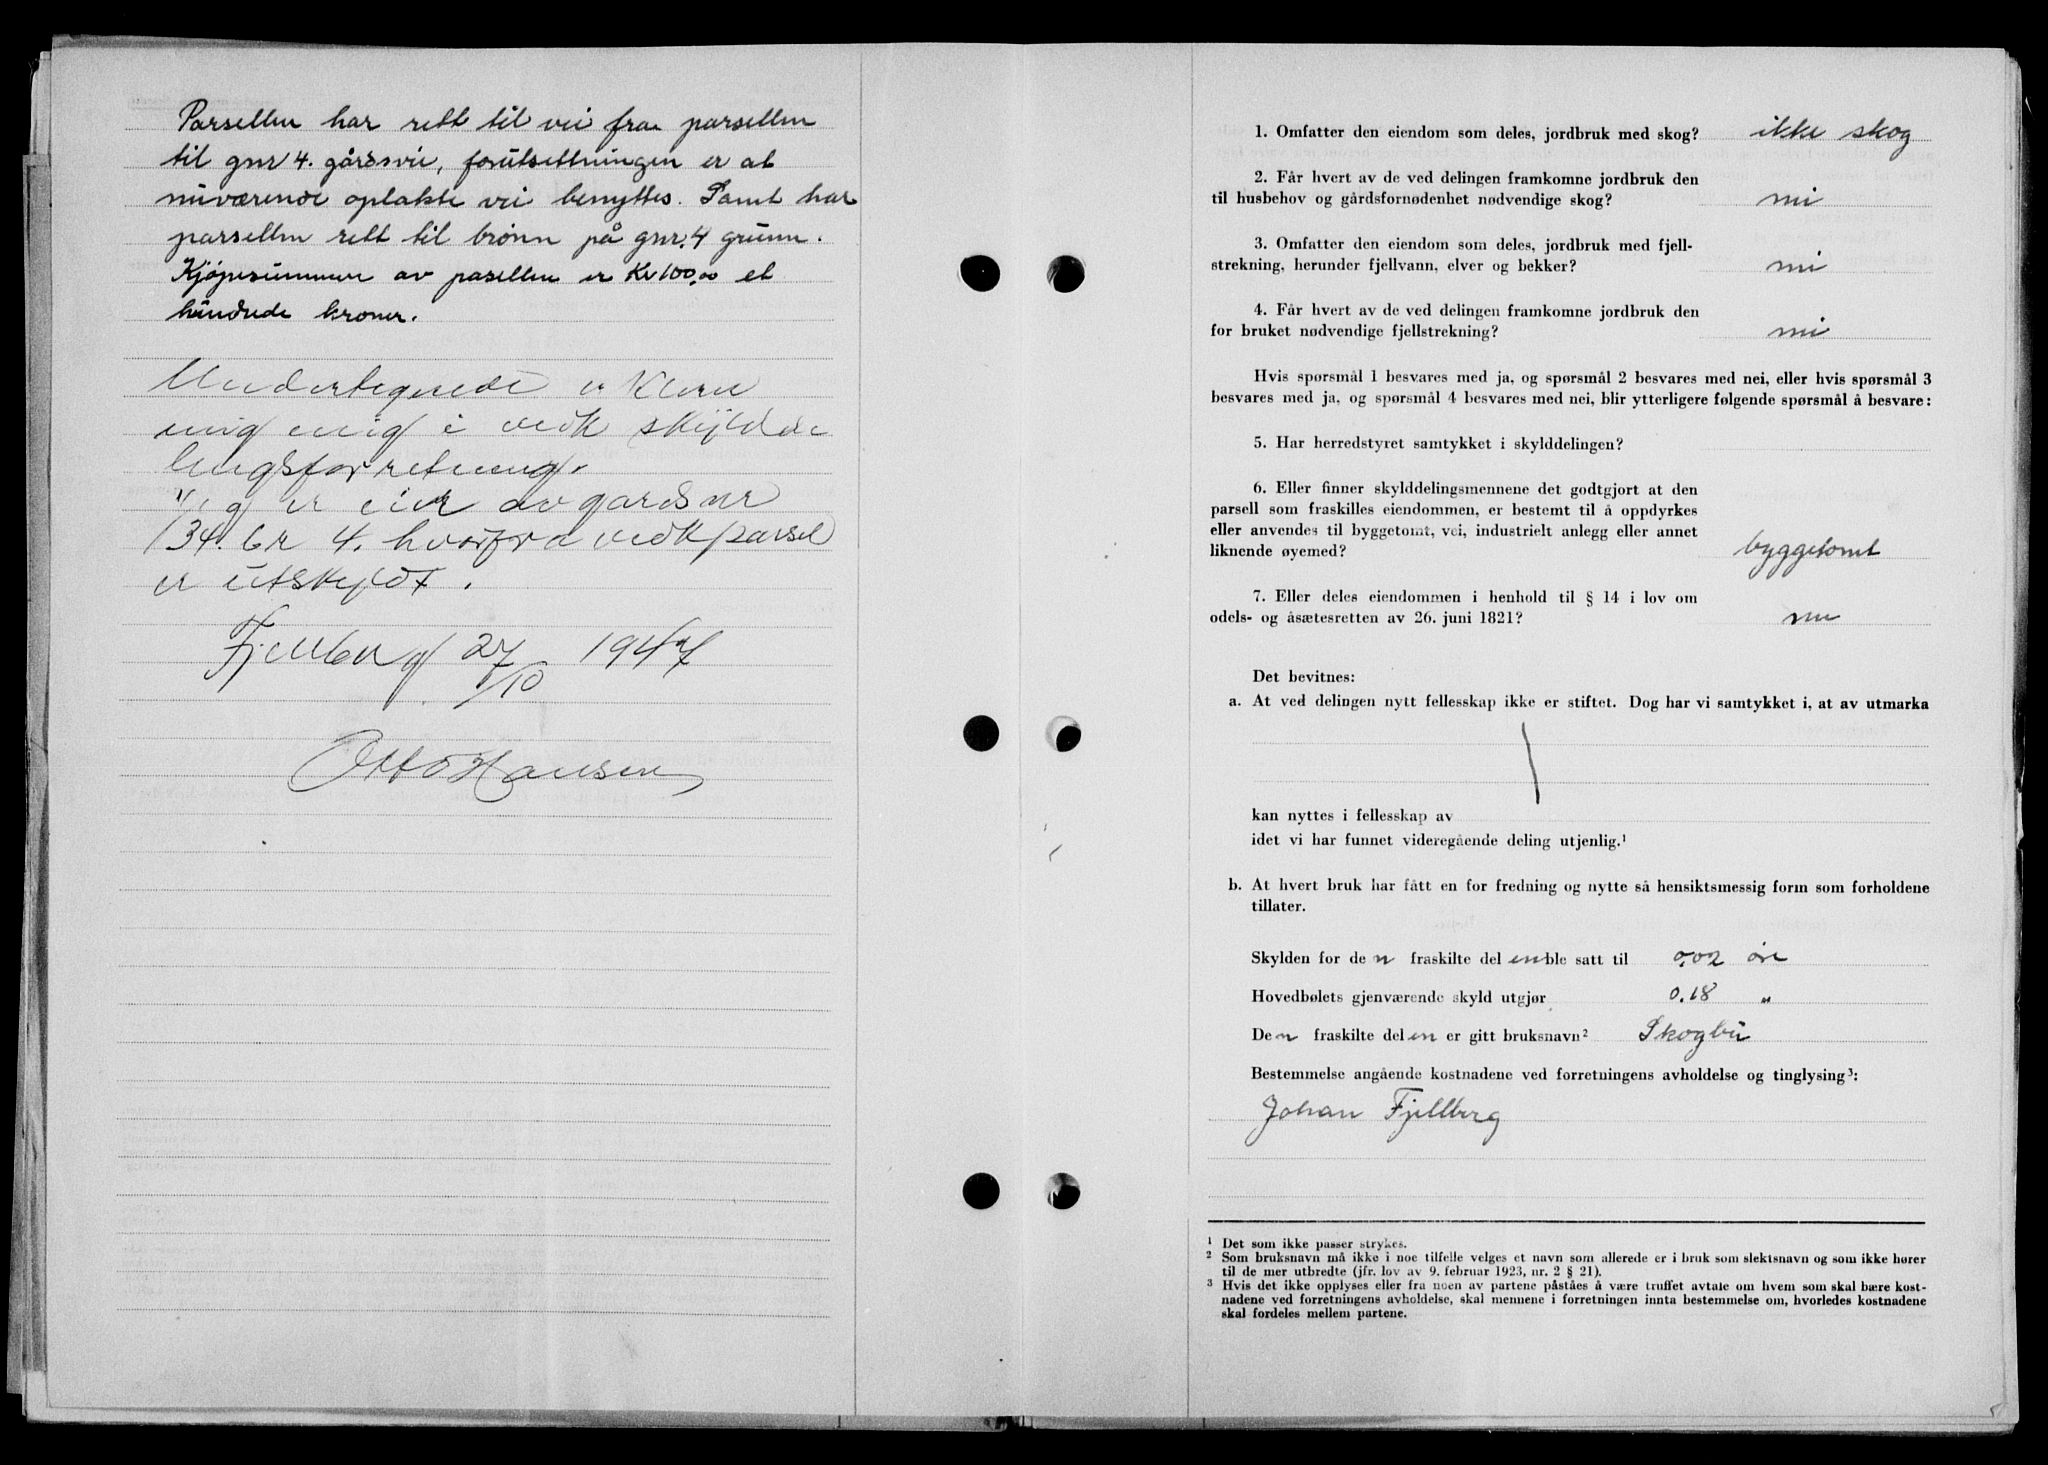 Parsellen har rett til vei fra parsellen
til gnr 4. gårdsvei, forutsettningen er at
nuværende oplakte vei benyttes. Samt har
parsellen rett til brønn på gnr. 4 grunn.
Kjøpesummen av pasellen er Kr 100,00 et
hundrede kroner.
Undertegnede erklerer
mig enig i vedk skyldde
lingsforretning.
Jeg er eier av gardsnr
134. br 4. hvorfra vedk parsel
er utskyldt.
Fjellberg 27/10 1947
Otto Hansen
1. Omfatter den eiendom som deles, jordbruk med skog? ikke skog
2. Får hvert av de ved delingen framkomne jordbruk den
til husbehov og gårdsfornødenhet nødvendige skog? nei
3. Omfatter den eiendom som deles, jordbruk med fjell-
strekning, herunder fjellvann, elver og bekker? nei
4. Får hvert av de ved delingen framkomne jordbruk den
for bruket nødvendige fjellstrekning? nei
Hvis spørsmål 1 besvares med ja, og spørsmål 2 besvares med nei, eller hvis spørsmål 3
besvares med ja, og spørsmål 4 besvares med nei, blir ytterligere følgende spørsmål å besvare:
5. Har herredstyret samtykket i skylddelingen?
6. Eller finner skylddelingsmennene det godtgjort at den
parsell som fraskilles eiendommen, er bestemt til å oppdyrkes
eller anvendes til byggetomt, vei, industrielt anlegg eller annet
liknende øyemed? byggetomt
7. Eller deles eiendommen i henhold til § 14 i lov om
odels- og åsætesretten av 26. juni 1821? nei
Det bevitnes:
a. At ved delingen nytt fellesskap ikke er stiftet. Dog har vi samtykket i, at av utmarka
kan nyttes i fellesskap av
idet vi har funnet videregående deling utjenlig.¹
b. At hvert bruk har fått en for fredning og nytte så hensiktsmessig form som forholdene
tillater.
Skylden for den fraskilte del en ble satt til 0,02 øre
Hovedbølets gjenværende skyld utgjør 0.18 "
Den fraskilte delen er gitt bruksnavn² Skogbu
Bestemmelse angående kostnadene ved forretningens avholdelse og tinglysing³:
Johan Fjellberg
¹ Det som ikke passer strykes.
² Som bruksnavn må ikke i noe tilfelle velges et navn som allerede er i bruk som slektsnavn og som ikke hører
til de mer utbredte (jfr. lov av 9. februar 1923, nr. 2 § 21).
³ Hvis det ikke opplyses eller fra noen av partene påståes å være truffet avtale om hvem som skal bære kost-
nadene ved forretningens avholdelse, skal mennene i forretningen innta bestemmelse om, hvorledes kostnadene
skal fordeles mellem partene.